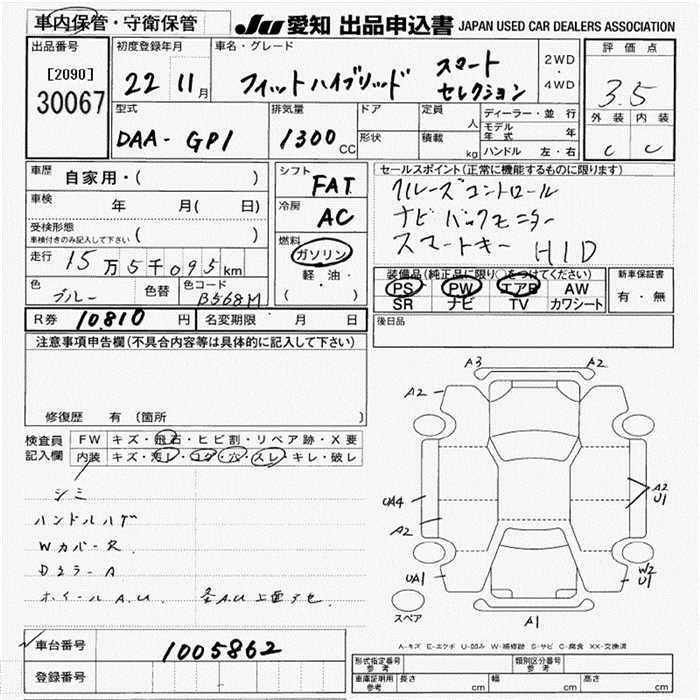 車内保管・守衛保管
JU 愛知 出品申込書 JAPAN USED CAR DEALERS ASSOCIATION
出品番号
[2090]
30067
初度登録年月
22 11月
車名・グレード
フィットハイブリッド スマートセレクション
2WD
・
4WD
評価点
3.5
外装 内装
C C
型式
DAA-GP1
排気量
1300cc
ドア
形状
定員 人
積載 kg
ディーラー・並行
モデル年式 年
ハンドル 左・右
車歴 自家用・( )
車検 年 月( 日)
受検形態
車検付きのみ記入して下さい ( )
走行 15万5千095km
色 ブルー 色替
色コード B568M
シフト FAT
冷房 AC
燃料
ガソリン
軽・油・
( )
セールスポイント(正常に機能するものに限ります)
クルーズコントロール
ナビ バックモニター
スマートキー HID
装備品(純正品に限り○をつけてください)
PS PW エアB AW
SR ナビ TV カワシート
新車保証書
有・無
R券 10,810円 名変期限 月 日
後日品
注意事項申告欄(不具合内容等は具体的に記入して下さい)
修復歴 有 (箇所 )
検査員記入欄
FW キズ・飛石・ヒビ割・リペア跡・X要
内装 キズ・汚レ・コゲ・穴・スレ・キレ・破レ
シミ
ハンドルハゲ
Wカバー欠
Dミラー A
ホイールA.U.
A3 A2
A2
UA4
A2
UA1
A2
U1
W2
U1
スペア
A1
A-キズ E-エクボ U-凹み W-補修跡 S-サビ C-腐食 XX-交換済
車台番号 1005862
登録番号
形式指定番号
参考
類別区分番号
参考
車庫証明用
参考
長さ cm 幅 cm 高さ cm